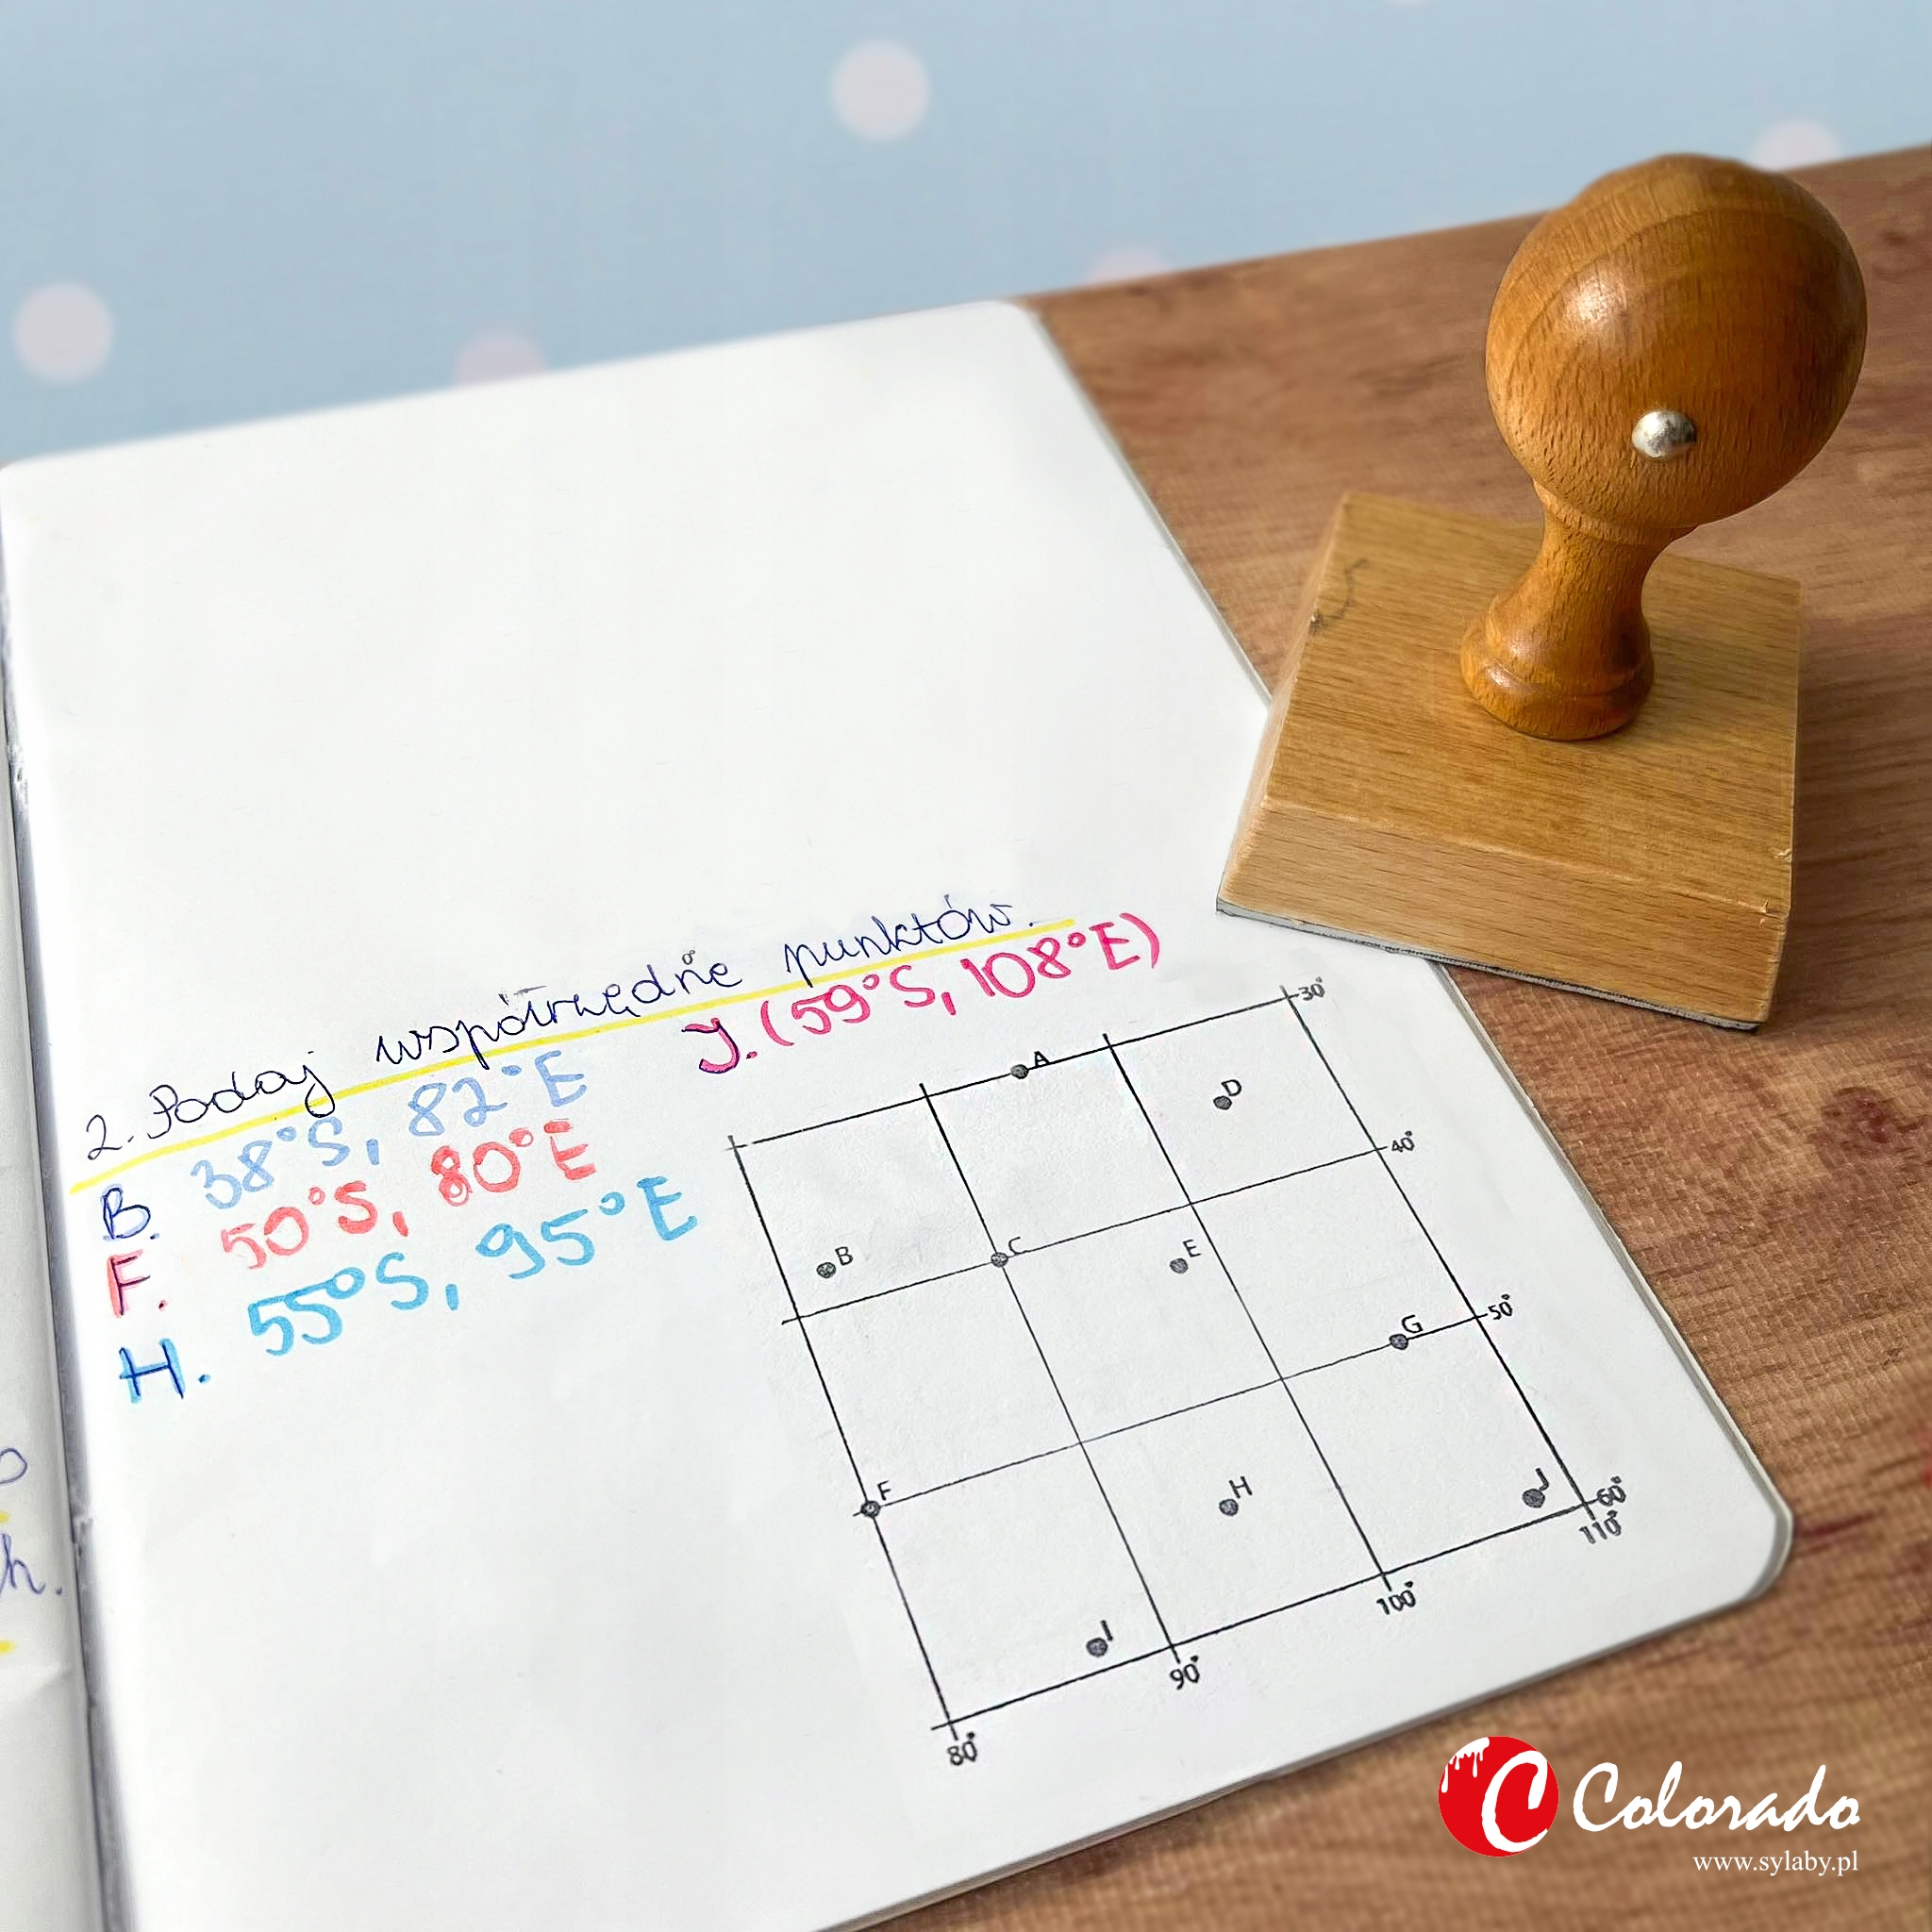 2. Podaj współrzędne punktów.
B. 38°S, 82°E
F. 50°S, 80°E
H. 55°S, 95°E
J. (59°S, 108°E)
30°
A
D
40°
B
C
E
50°
G
F
H
J
60°
110°
100°
I
90°
80°
h.
C Colorado
www.sylaby.pl